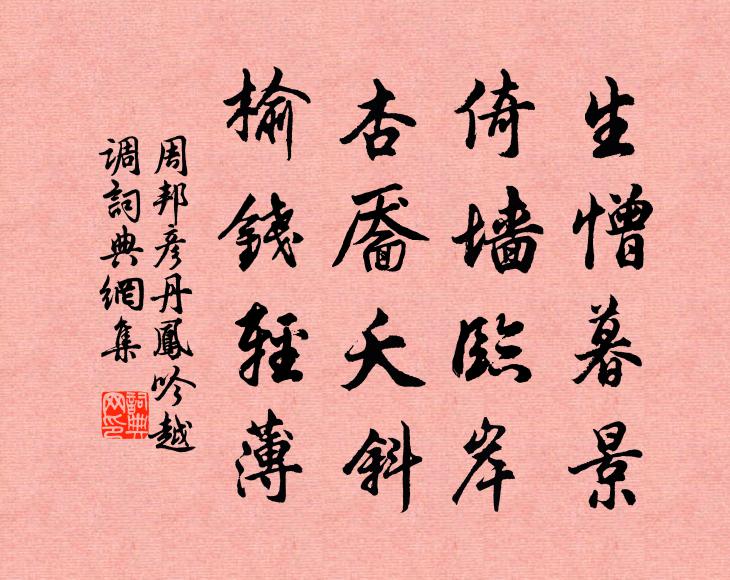 生憎暮景
倚墙臨岸
杏靨夭斜
榆錢輕薄
周邦彦丹鳳吟越
调詞典網集
詞典网印